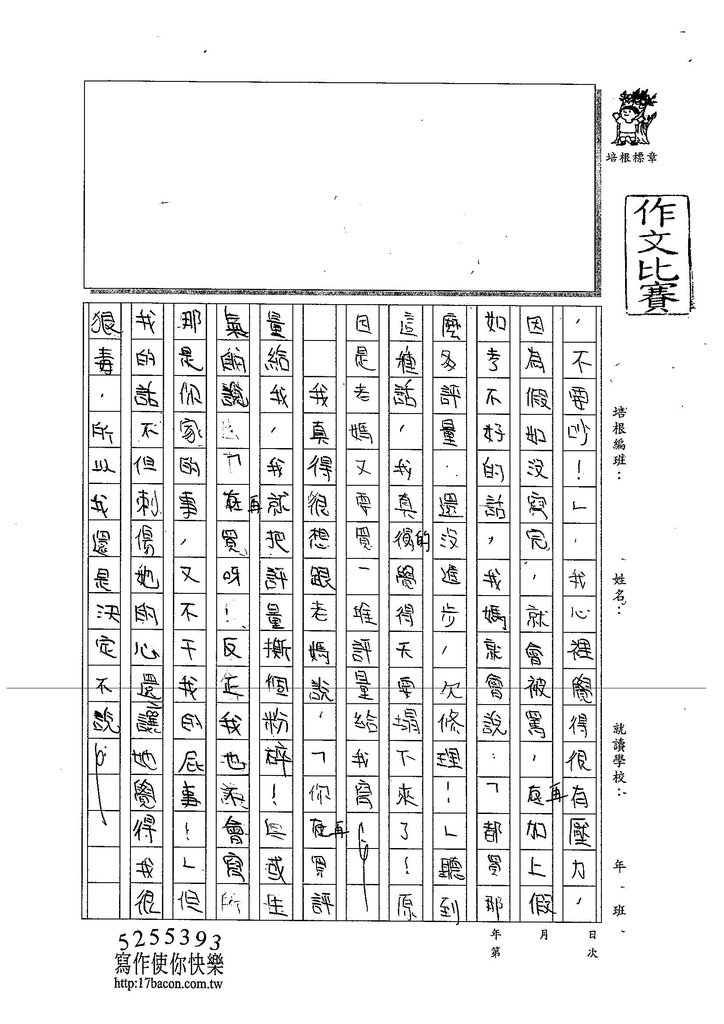 培根標章
作文比賽
培根編班：
姓名：
就讀學校：
年 班
，不要吵！」，我心裡覺得很有壓力，
因為假如沒寫完，就會被罵，在再加上假
如考不好的話，我媽就會說：「都買那
麼多評量，還沒進步，欠修理！」聽到
這種話，我真得的覺得天要塌下來了！原
因是老媽又要買一堆評量給我寫
我真得很想跟老媽說，「你在再買評
量給我，我就把評量撕個粉碎！或生
氣的說「在再買呀！反正我也會寫所
那是你家的事，又不干我的屁事！」但
我的話不但刺傷她的心還讓她覺得我很
狠毒，所以我還是決定不說
年 月 日
第 次
5255393
寫作使你快樂
http:17bacon.com.tw